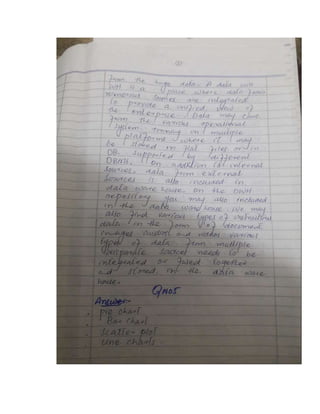 from the huge data. A data ware
DWH is a space where data from
numerous sources are integrated
to provide a unified view of
the enterprise Data may come
from the various operational
system running on multiple
platforms where it may
be stored in flat files or in
DB supported by different
DBMS. In addition to internal
sources data from external
sources is also included in
data ware house. In the DWH
repository you may also included
in the data warehouse we may
also find various types of
data in the form of document,
images and various
types of data from multiple
disparate sources needs to be
integrated or fused together
and stored in the data ware
house.
Qno5
Answer-
. pie chart
. Bar Chart
. scatter plot
. line charts.